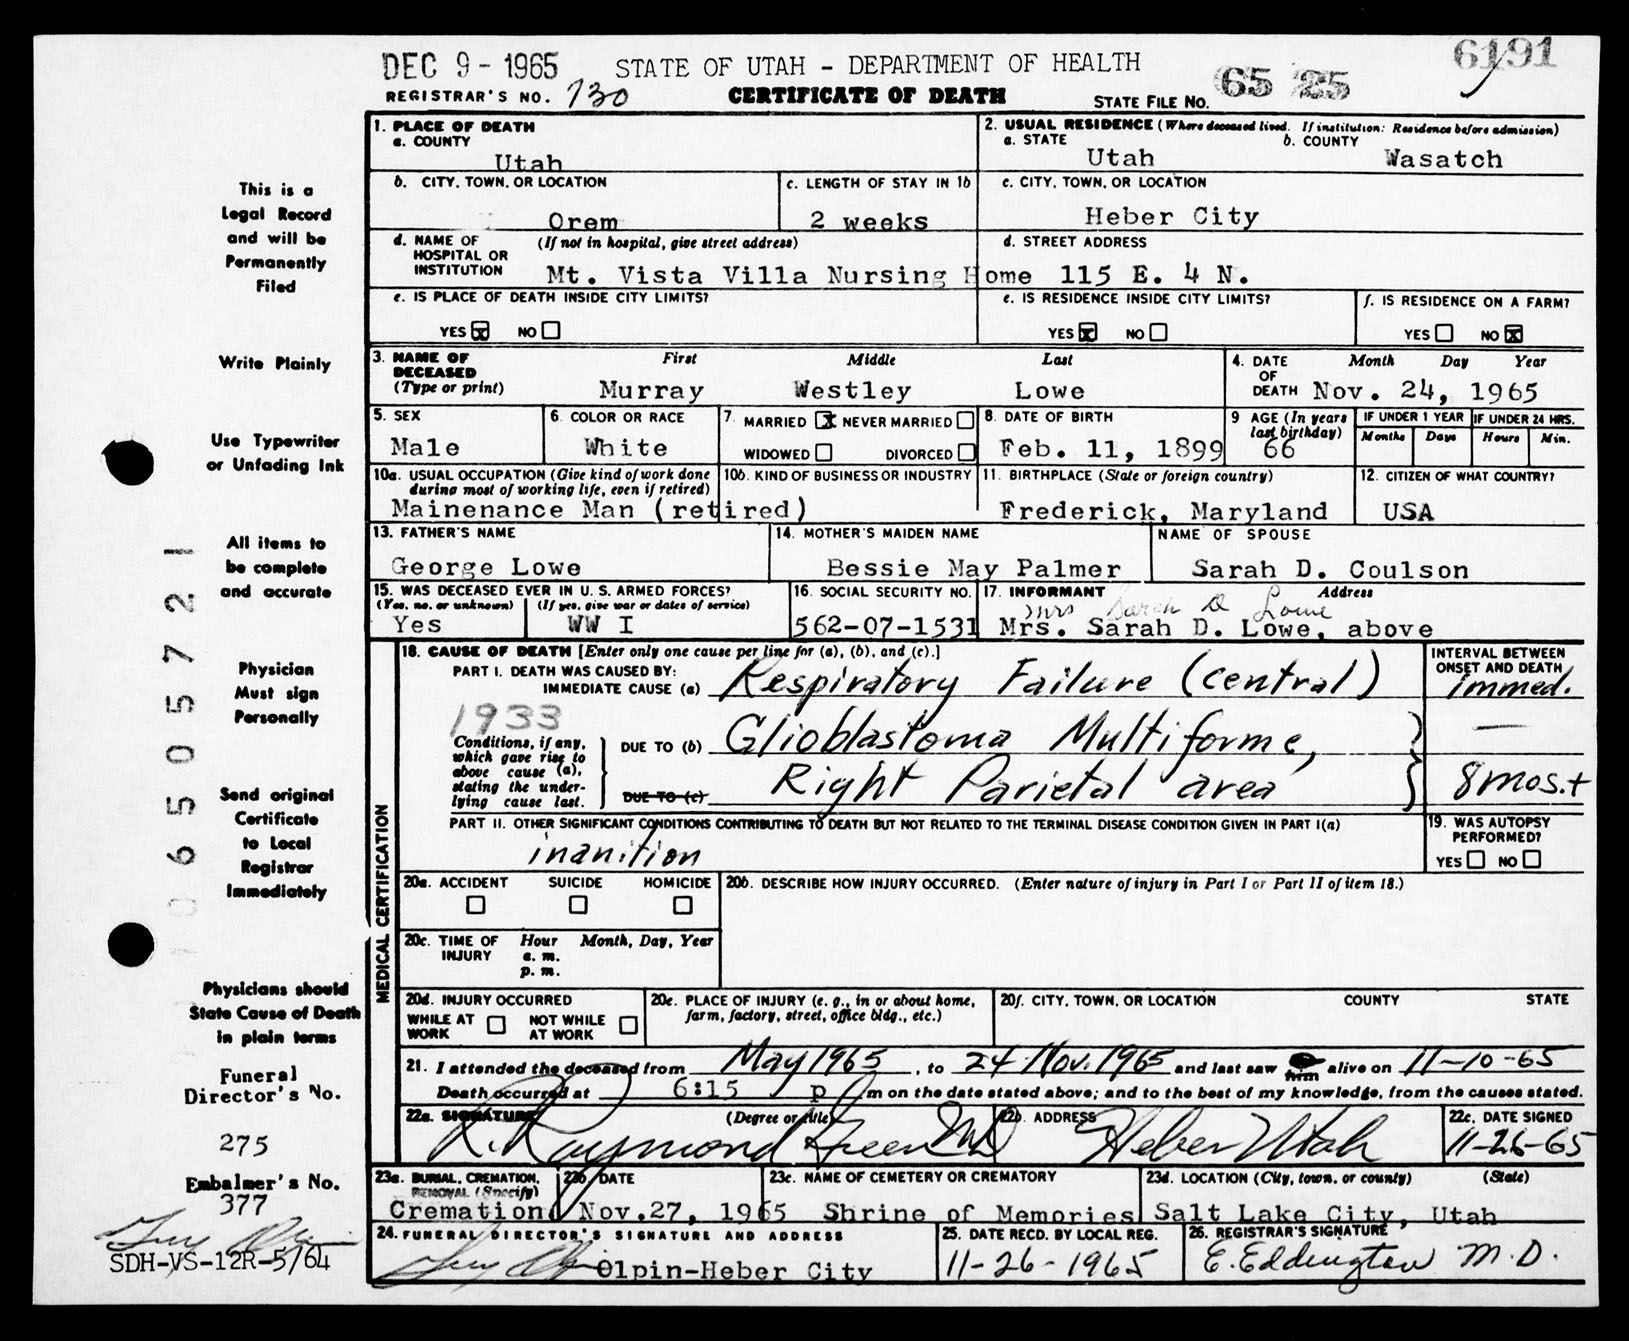 DEC 9 - 1965 STATE OF UTAH - DEPARTMENT OF HEALTH 6191
REGISTRAR'S NO. 730 CERTIFICATE OF DEATH STATE FILE NO. 65 25
1. PLACE OF DEATH
a. COUNTY
Utah
2. USUAL RESIDENCE (Where deceased lived. If institution: Residence before admission)
a. STATE b. COUNTY
Utah Wasatch
b. CITY, TOWN, OR LOCATION c. LENGTH OF STAY IN 1b c. CITY, TOWN, OR LOCATION
Orem 2 weeks Heber City
d. NAME OF HOSPITAL OR INSTITUTION (If not in hospital, give street address) d. STREET ADDRESS
Mt. Vista Villa Nursing Home 115 E. 4 N.
e. IS PLACE OF DEATH INSIDE CITY LIMITS? e. IS RESIDENCE INSIDE CITY LIMITS? f. IS RESIDENCE ON A FARM?
YES X NO YES X NO YES NO X
3. NAME OF DECEASED (Type or print) First Middle Last 4. DATE OF DEATH Month Day Year
Murray Westley Lowe Nov. 24, 1965
5. SEX 6. COLOR OR RACE 7. MARRIED X NEVER MARRIED 8. DATE OF BIRTH 9 AGE (In years last birthday) IF UNDER 1 YEAR IF UNDER 24 HRS.
Months Days Hours Min.
Male White WIDOWED DIVORCED Feb. 11, 1899 66
10a. USUAL OCCUPATION (Give kind of work done during most of working life, even if retired) 10b. KIND OF BUSINESS OR INDUSTRY 11. BIRTHPLACE (State or foreign country) 12. CITIZEN OF WHAT COUNTRY?
Mainenance Man (retired) Frederick, Maryland USA
13. FATHER'S NAME 14. MOTHER'S MAIDEN NAME NAME OF SPOUSE
George Lowe Bessie May Palmer Sarah D. Coulson
15. WAS DECEASED EVER IN U. S. ARMED FORCES? 16. SOCIAL SECURITY NO. 17. INFORMANT Address
(Yes, no, or unknown) (If yes, give war or dates of service) Mrs Sarah D Lowe
Yes WW I 562-07-1531 Mrs. Sarah D. Lowe, above
MEDICAL CERTIFICATION
18. CAUSE OF DEATH [Enter only one cause per line for (a), (b), and (c).] INTERVAL BETWEEN ONSET AND DEATH
PART I. DEATH WAS CAUSED BY:
IMMEDIATE CAUSE (a) Respiratory Failure (central) immed.
1933
Conditions, if any, which gave rise to above cause (a), stating the underlying cause last.
DUE TO (b) Glioblastoma Multiforme, —
DUE TO (c) Right Parietal area 8 mos.+
PART II. OTHER SIGNIFICANT CONDITIONS CONTRIBUTING TO DEATH BUT NOT RELATED TO THE TERMINAL DISEASE CONDITION GIVEN IN PART I(a)
inanition
19. WAS AUTOPSY PERFORMED?
YES NO
20a. ACCIDENT SUICIDE HOMICIDE 20b. DESCRIBE HOW INJURY OCCURRED. (Enter nature of injury in Part I or Part II of item 18.)
20c. TIME OF INJURY Hour Month, Day, Year
a. m.
p. m.
20d. INJURY OCCURRED 20e. PLACE OF INJURY (e. g., in or about home, farm, factory, street, office bldg., etc.) 20f. CITY, TOWN, OR LOCATION COUNTY STATE
WHILE AT WORK NOT WHILE AT WORK
21. I attended the deceased from May 1965, to 24 Nov. 1965 and last saw him alive on 11-10-65
Death occurred at 6:15 p m on the date stated above; and to the best of my knowledge, from the causes stated.
22a. SIGNATURE (Degree or title) 22b. ADDRESS 22c. DATE SIGNED
R. Raymond Green MD Heber Utah 11-26-65
23a. BURIAL, CREMATION, REMOVAL (Specify) 23b DATE 23c. NAME OF CEMETERY OR CREMATORY 23d. LOCATION (City, town, or county) (State)
Cremation Nov. 27, 1965 Shrine of Memories Salt Lake City, Utah
24. FUNERAL DIRECTOR'S SIGNATURE AND ADDRESS 25. DATE RECD. BY LOCAL REG. 26. REGISTRAR'S SIGNATURE
Olpin-Heber City 11-26-1965 E. Eddington M.D.
This is a
Legal Record
and will be
Permanently
Filed
Write Plainly
Use Typewriter
or Unfading Ink
All items to
be complete
and accurate
Physician
Must sign
Personally
Send original
Certificate
to Local
Registrar
Immediately
Physicians should
State Cause of Death
in plain terms
Funeral
Director's No.
275
Embalmer's No.
377
SDH-VS-12R-5/64
06505721